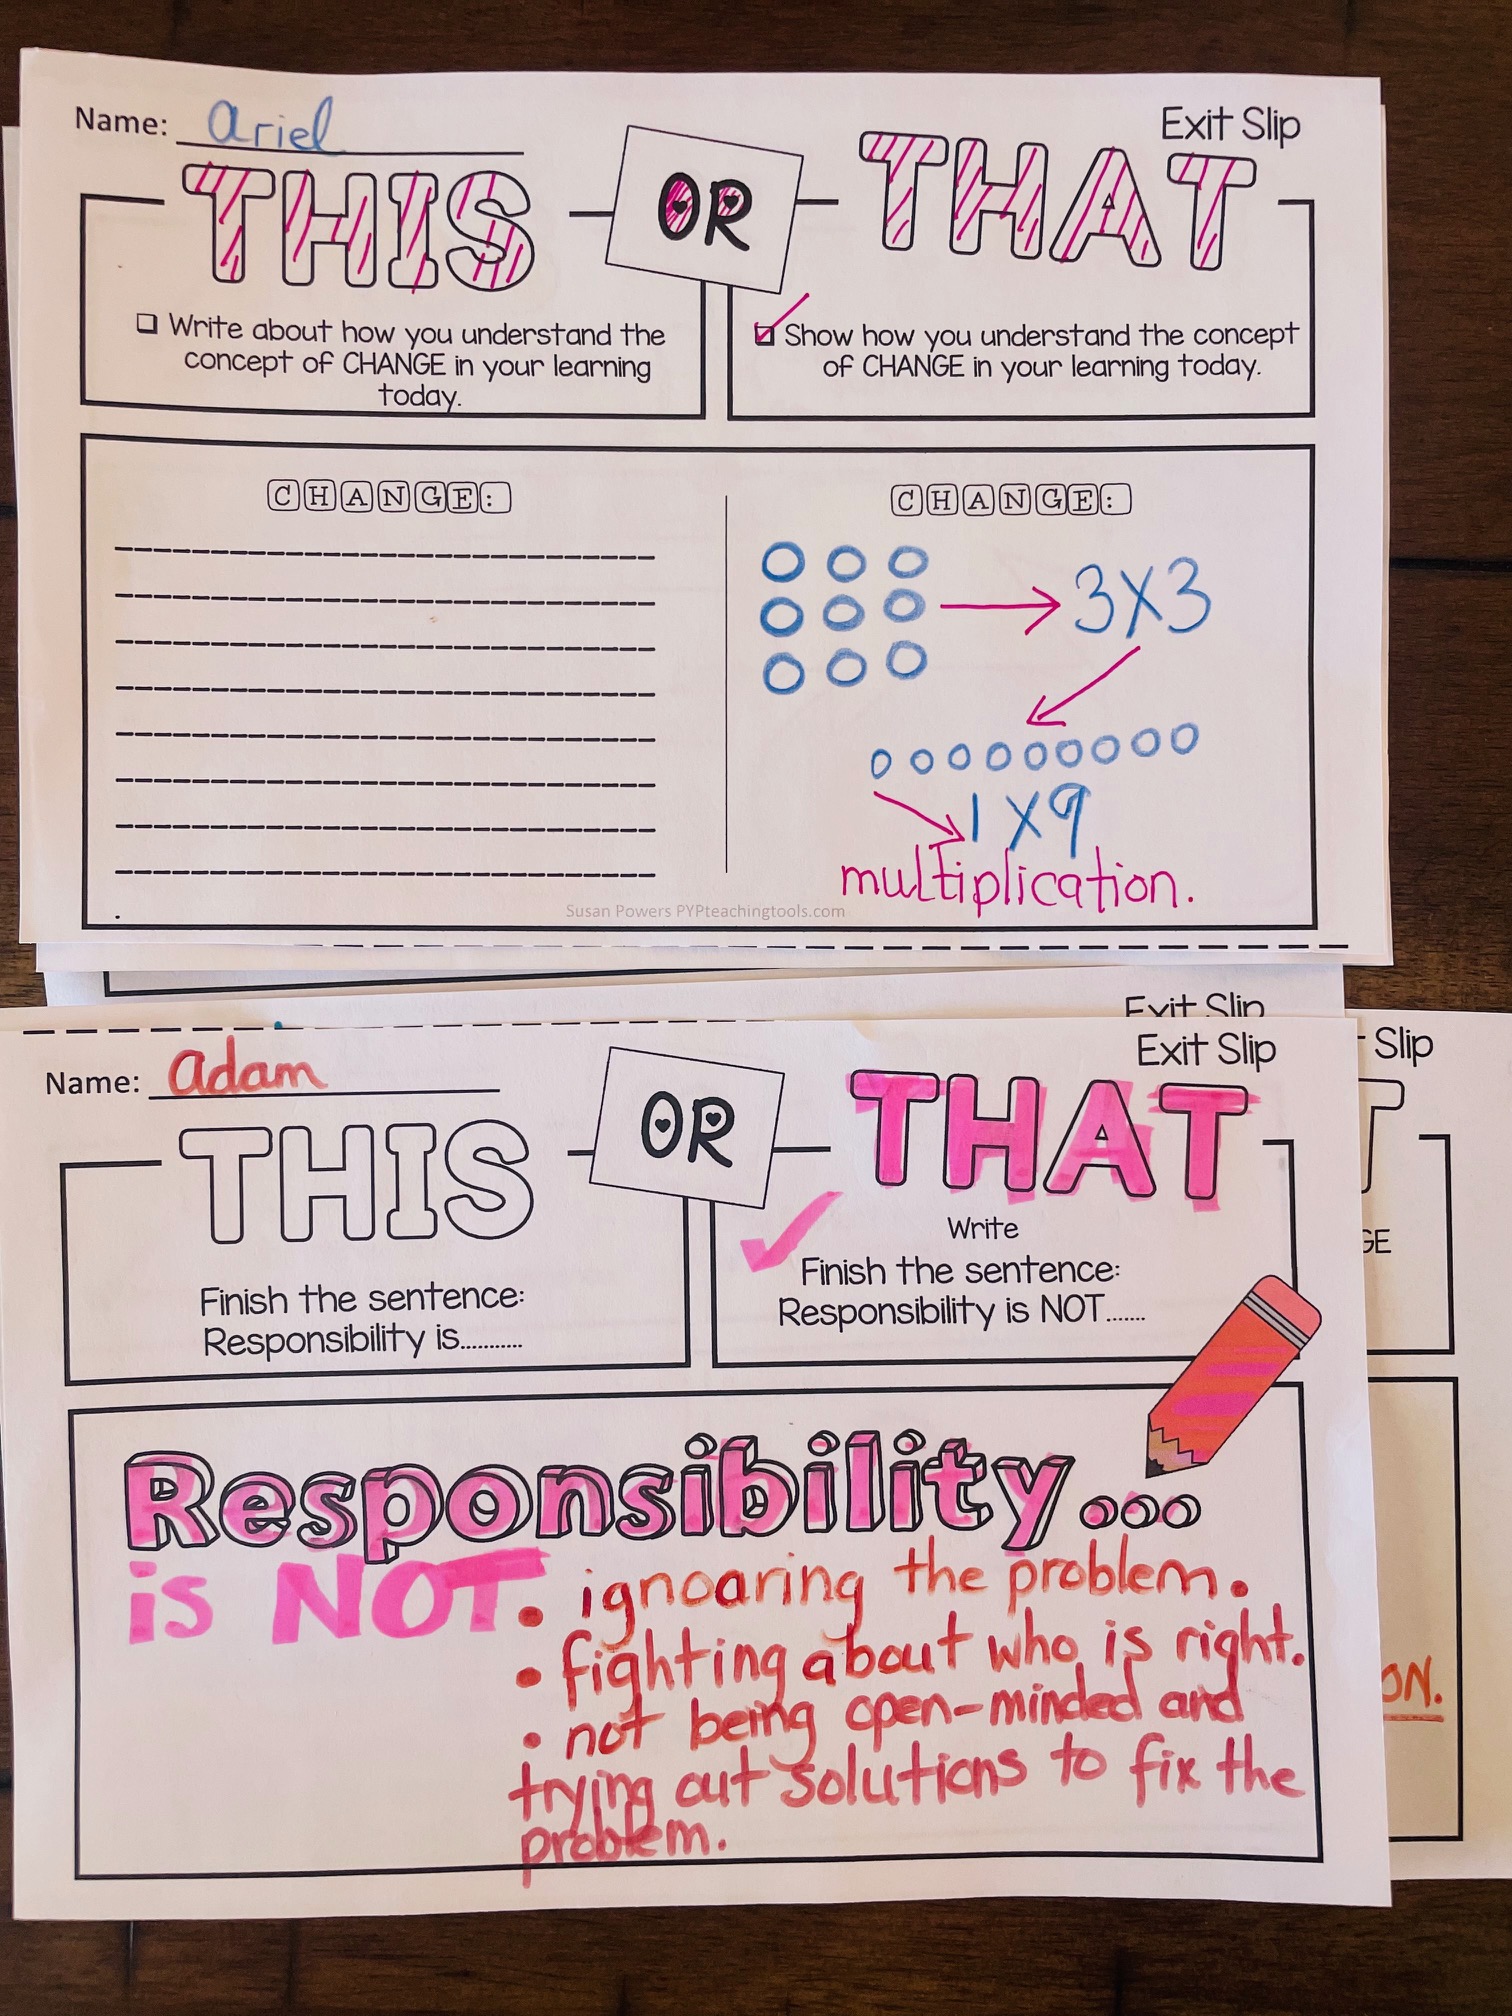 Name: Ariel
Exit Slip
THIS OR THAT
Write about how you understand the
concept of CHANGE in your learning
today.
Show how you understand the concept
of CHANGE in your learning today.
CHANGE:
CHANGE:
3X3
1X9
multiplication.
Susan Powers PYPteachingtools.com
Exit Slip
Name: Adam
Exit Slip
Slip
THIS OR THAT
T
Finish the sentence:
Responsibility is...........
Write
Finish the sentence:
Responsibility is NOT.......
GE
Responsibility...
is NOT
• ignoaring the problem.
• fighting about who is right.
• not being open-minded and
trying out solutions to fix the
problem.
ON.